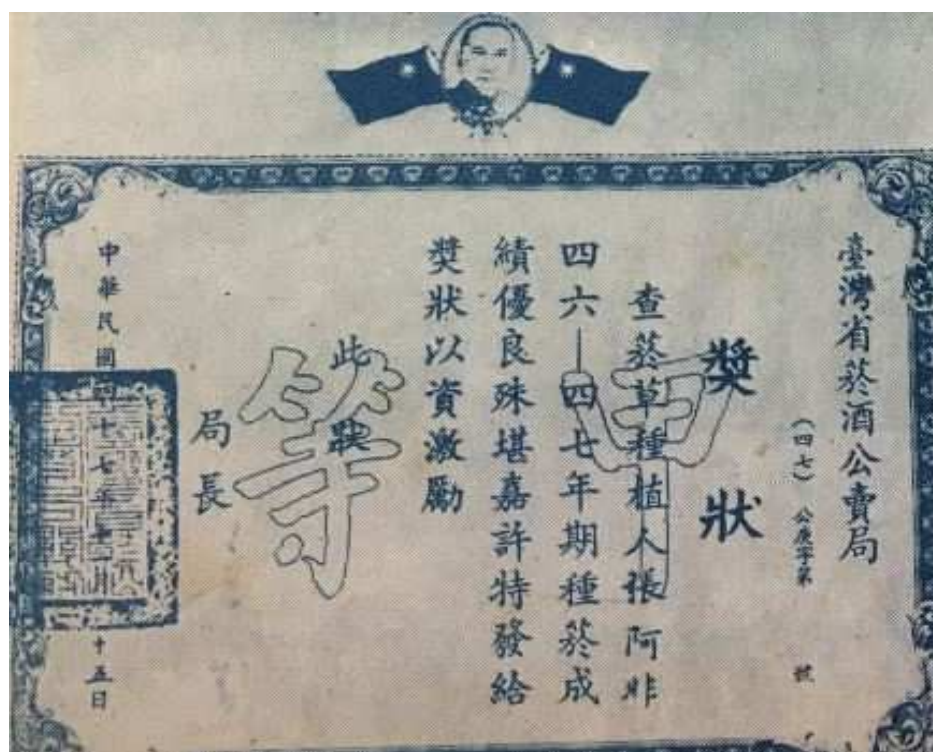 臺灣省菸酒公賣局
獎狀
(四七)公庚字第 號
查菸草種植人張阿非
四六—四七年期種菸成
績優良殊堪嘉許特發給
獎狀以資激勵
此狀
局長
中華民國四十七年十二月十五日